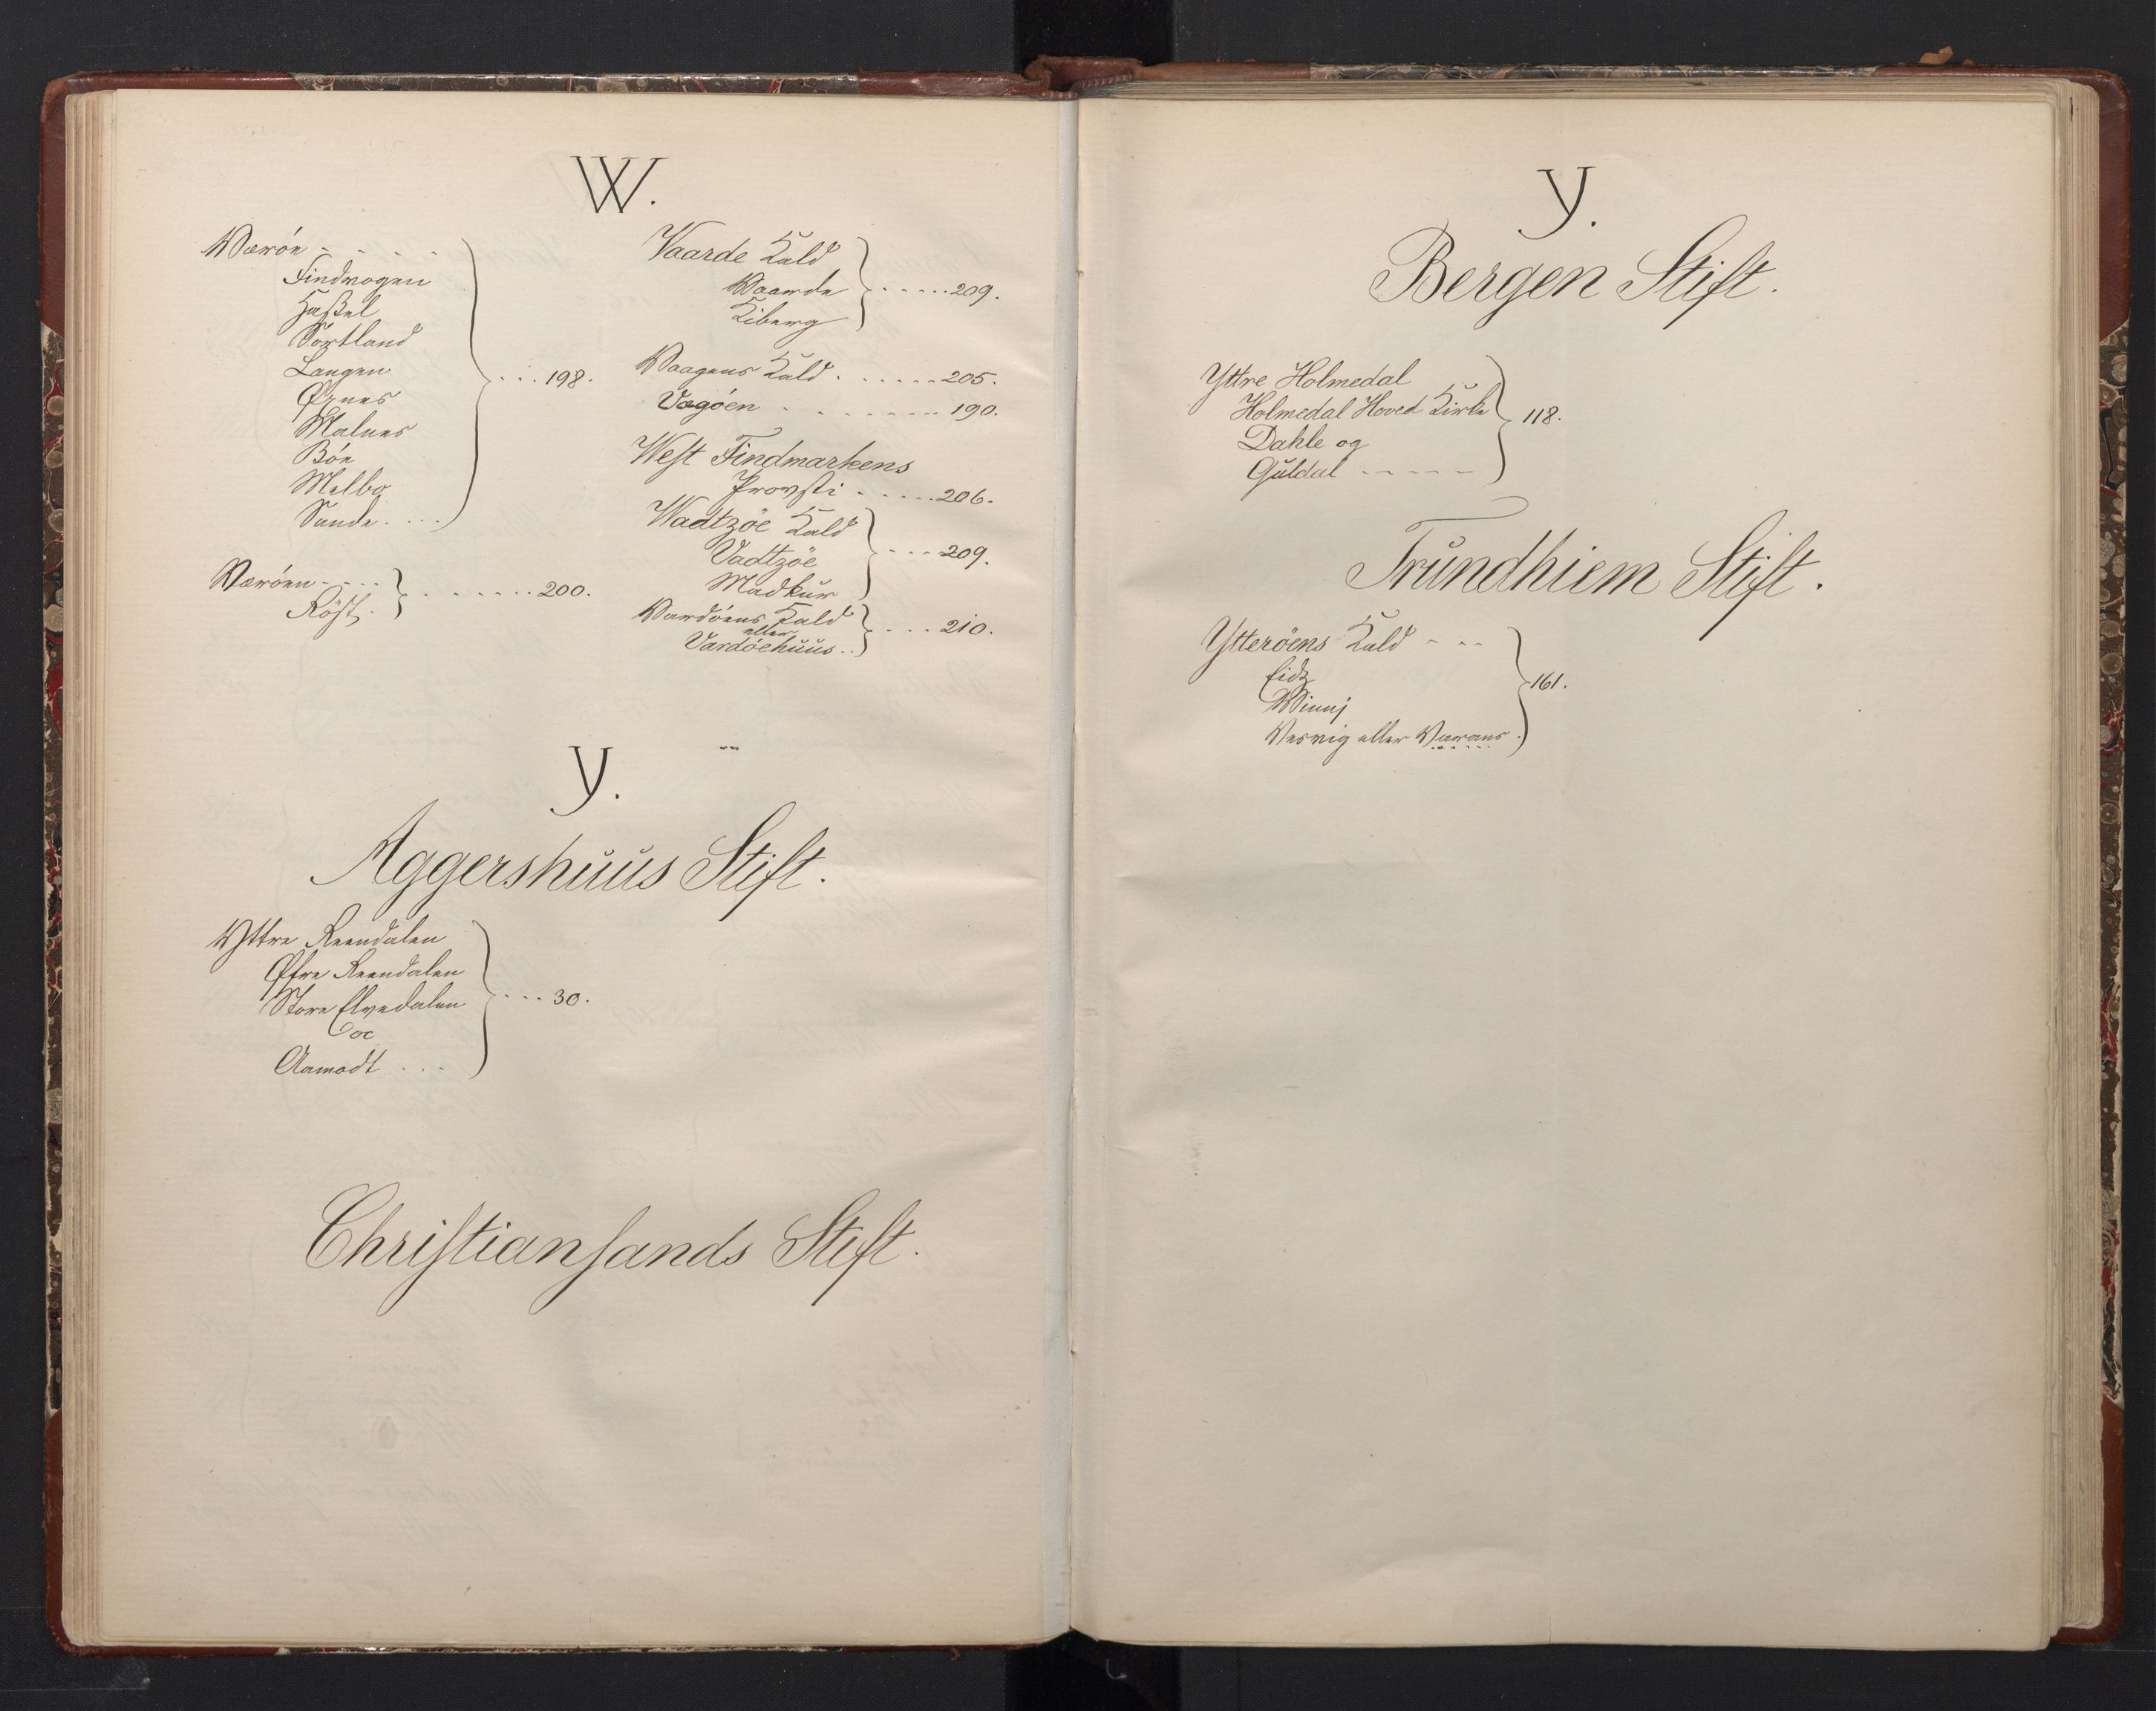 W.
Værøe - - - -
Findvogen
Haßel
Sortland
Langen
Øxnes
Malnes
Bøe
Melbo
Sande. . . . } . . . 198.
Værøen - - - -
Röst. } . . . . . . . 200.
Vaarde Kald
Vaarde
Kiberg } . . . . . 209.
Vaagens Kald . . . . . . 205.
Vogöen . . . . . . . . 190.
West Findmarkens
Provsti . . . . . 206.
Wadtzöe Kald
Vadtzöe
Madkur } . . . . 209.
Vardöens Kald
eller
Vardöehuus . . } . . . 210.
Y.
Aggershuus Stift.
Yttre Reendalen
Øfre Reendalen
Store Elvedalen
oc
Aamodt . . . } . . . 30.
Christiansands Stift.
Y.
Bergen Stift.
Yttre Holmedal
Holmedal Hoved Kirke
Dahle og
Guldal - - - - - } 118.
Trundhiem Stift.
Ytteröens Kald - - -
Eidz
Winnj
Vesvig eller Værans . } 161.